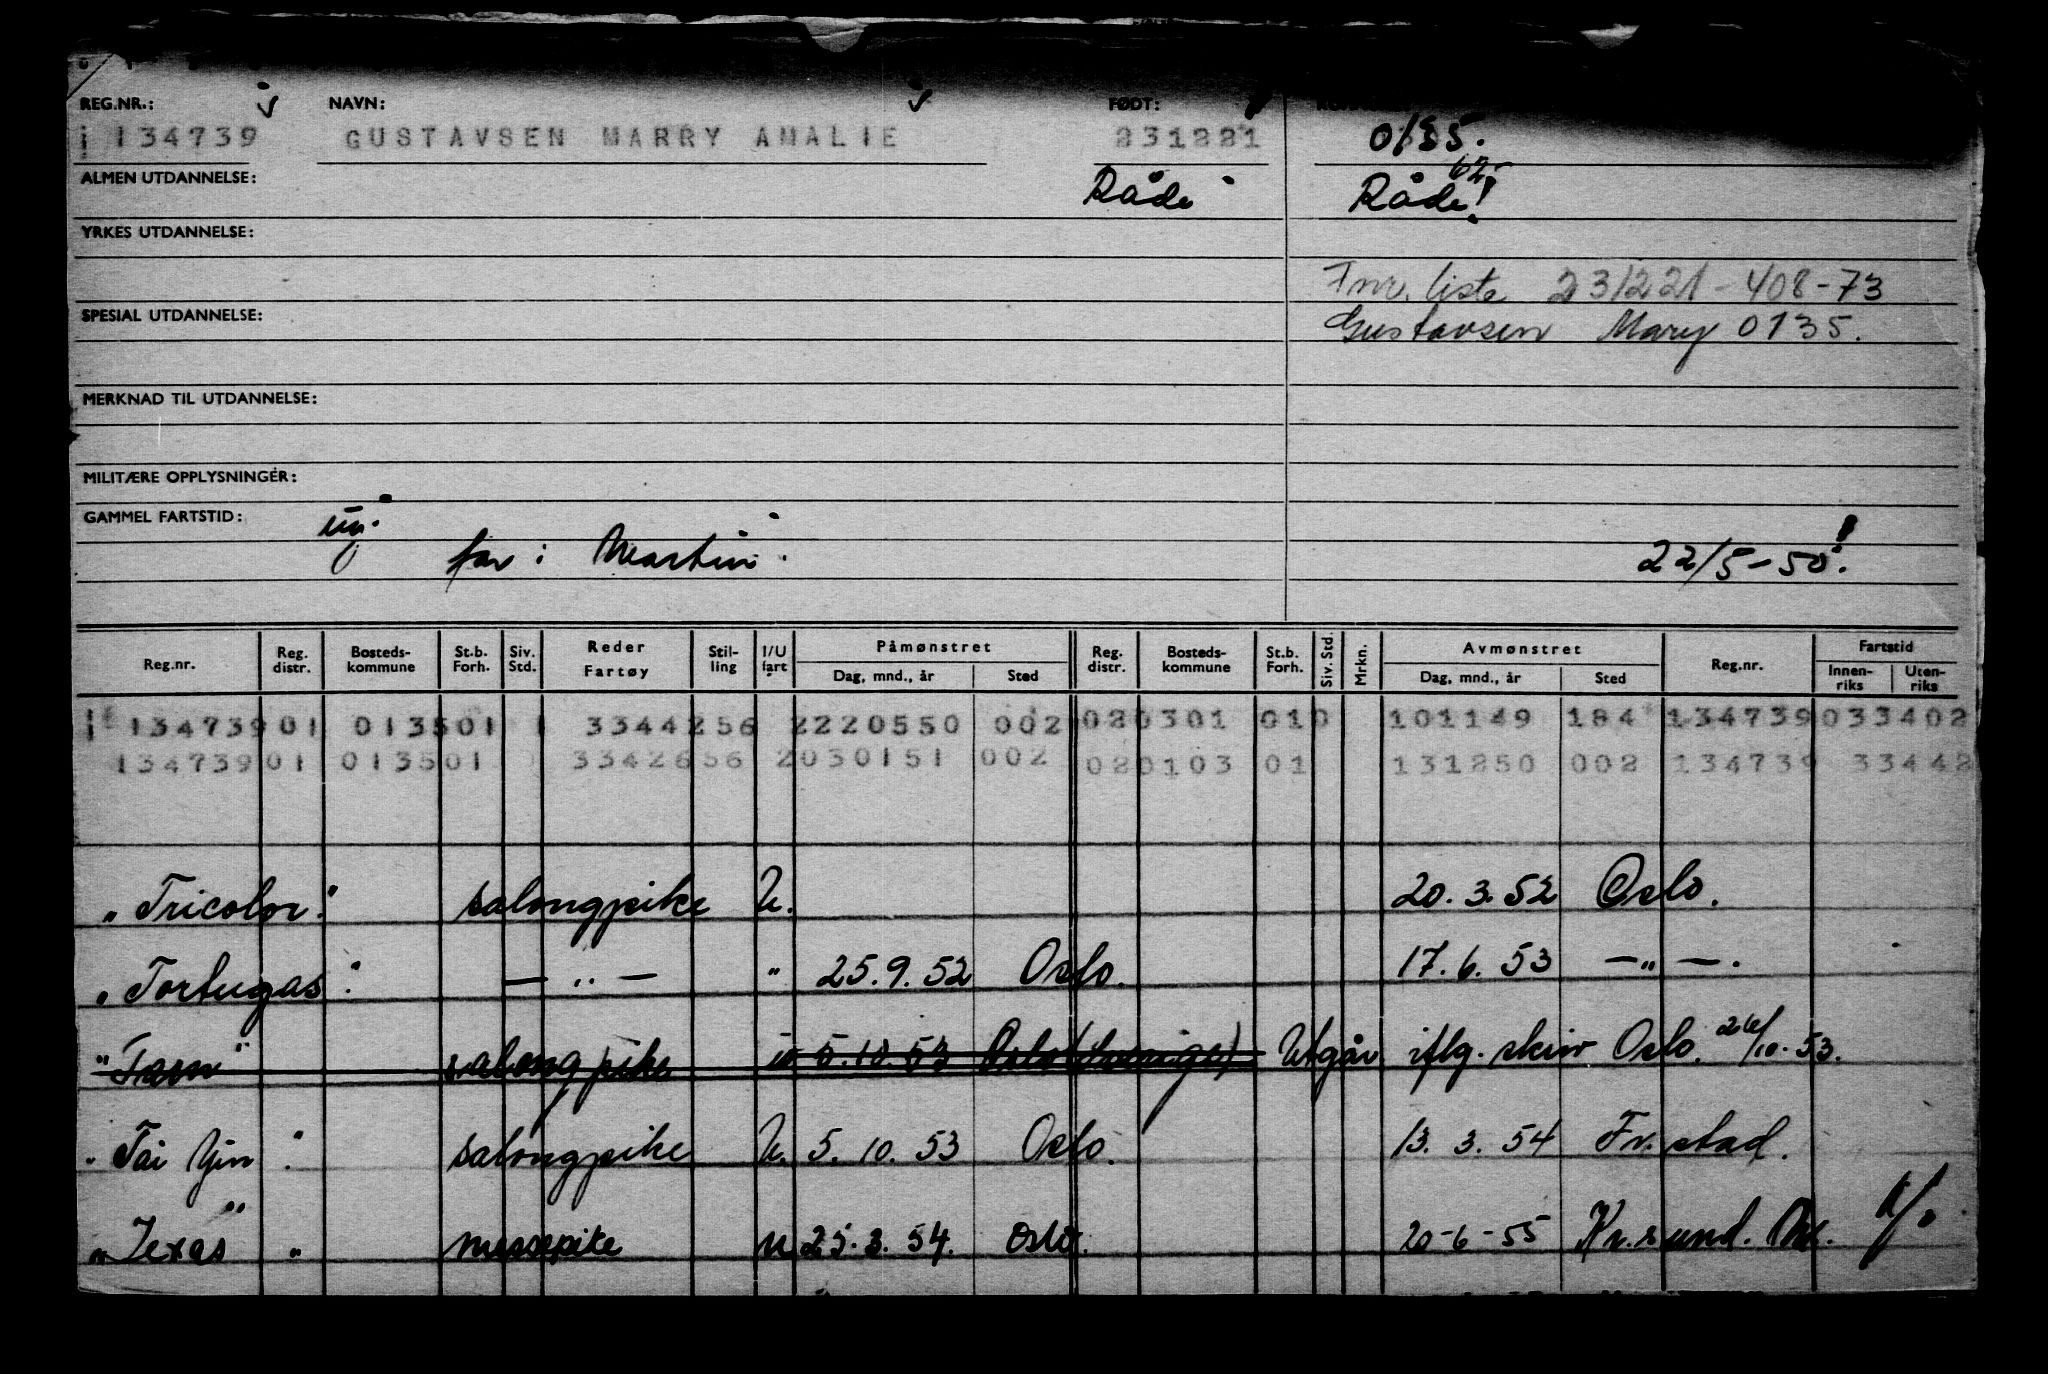 REG.NR.: NAVN: FØDT:
134739 GUSTAVSEN MARRY AMALIE 231221 0135.
62
ALMEN UTDANNELSE: Råde Råde!
YRKES UTDANNELSE:
Fnr. liste 231221-408-73
SPESIAL UTDANNELSE: Gustavsen Mary 0135.
MERKNAD TIL UTDANNELSE:
MILITÆRE OPPLYSNINGER:
GAMMEL FARTSTID: ug.
far: Martin. 22/5-50!
Reg.nr. Reg. distr. Bosteds-kommune St.b. Forh. Siv. Std. Reder Fartøy Stil-ling I/U fart Påmønstret Dag, mnd., år Sted Reg. distr. Bosteds-kommune St.b. Forh. Siv. Std. Mrkn. Avmønstret Dag, mnd., år Sted Reg.nr. Fartstid Innen-riks Uten-riks
134739 01 0135 01 1 3344 256 2 220550 002 02 0301 01 0 101149 184 134739 033402
134739 01 0135 01 3342 656 2 030151 002 02 0103 01 131250 002 134739 33442
"Tricolor" salongpike U. 20.3.52 Oslo.
"Tortugas" — " — " 25.9.52 Oslo. 17.6.53 — " —.
"Tarn" salongpike u 5.10.53 Oslo Utgår iflg. skriv Oslo. 26/10.53.
"Tai Yin" salongpike U. 5.10.53 Oslo. 13.3.54 Fr.stad.
"Texas" messepike u 25.3.54. Oslo. 20-6-55 Kr.sund.